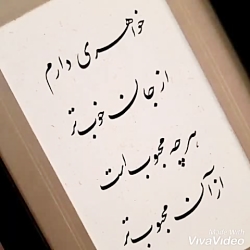 خواهری دارم
از جان خوب تر
هر چه محبوب است
از آن محبوب تر
Made With
VivaVideo